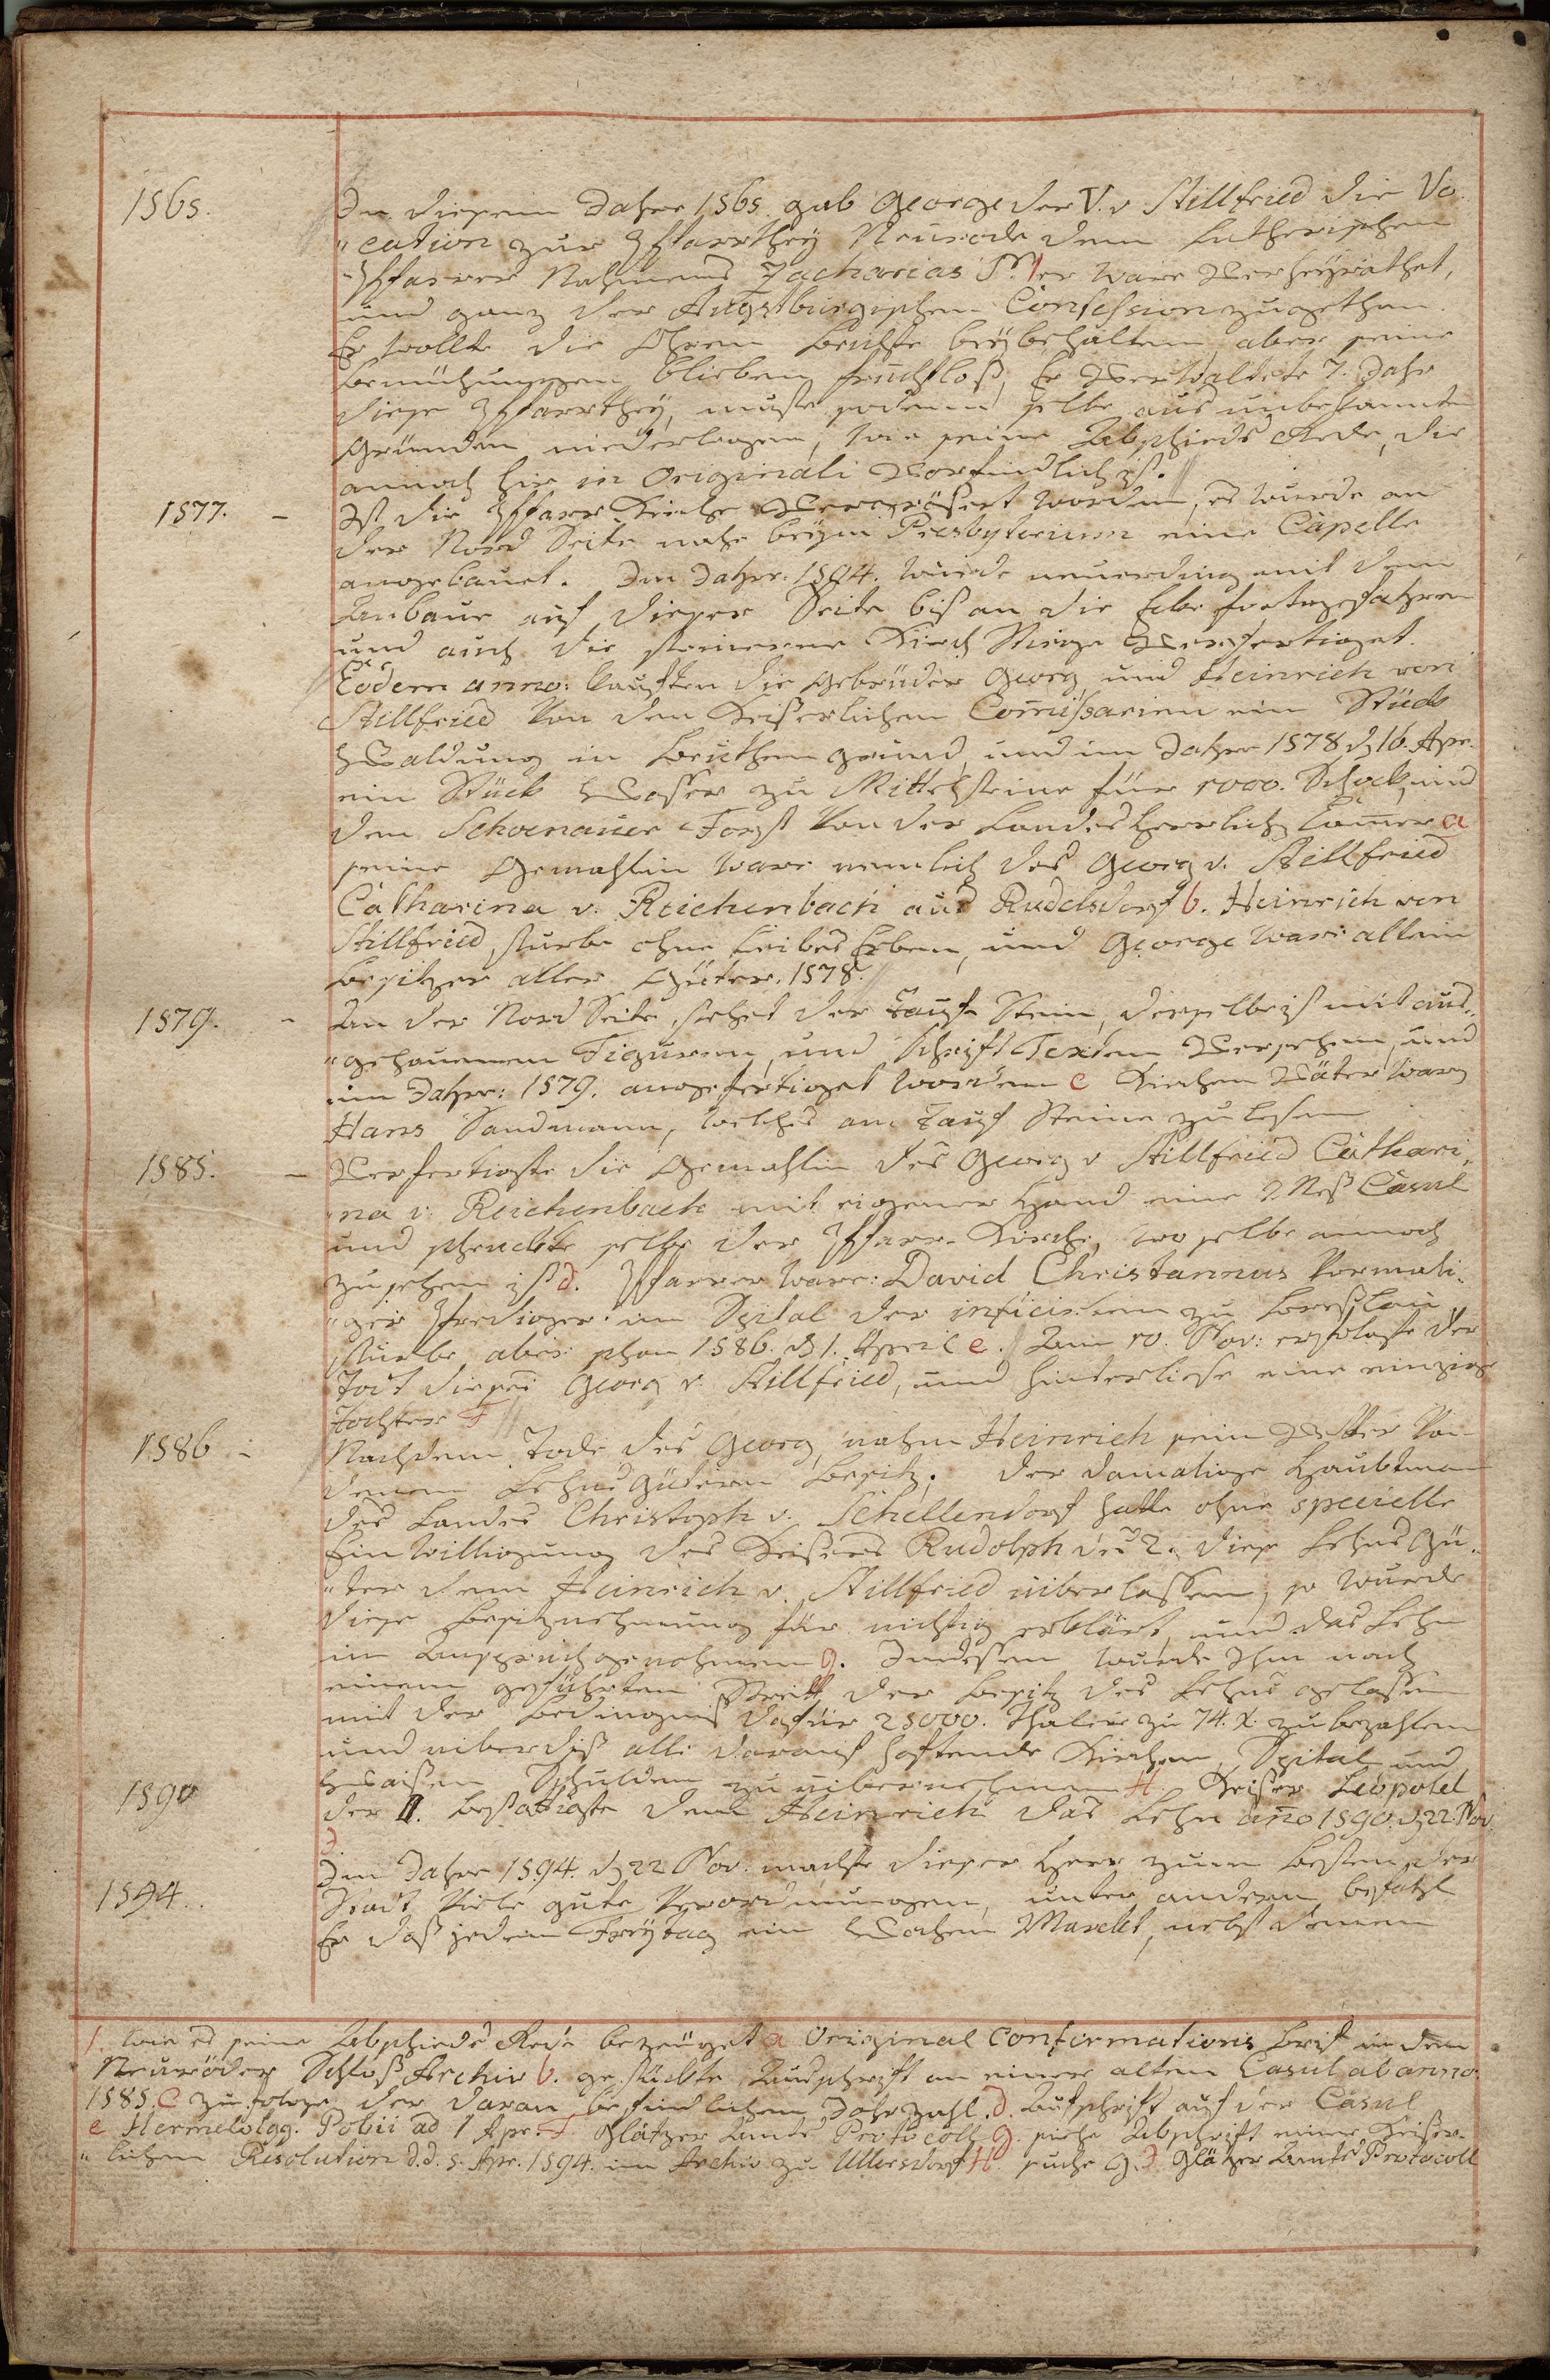 1565.
In diesem Jahre 1565. gab George der V. v Stillfried die Vo
"cation zur Pfarrthey Neurode dem Lutherischen
Pfarrer Nahmens Zacharias er ware Verheyrathet,
und ganz der Augstburgischen Confession zugethan.
Er wollte die Ohren beichte beybehalten aber seine
bemühungen blieben fruchtloß, Er Verwaltete 7. Jahr
diese Pfarrthey, muste sodenn selbe aus unbekannten
Gründen niederlegen, wie seine Abschieds Rede, die
annoch hie in Originali Vorfindlich ist.
1577. -
Ist die Pfarr Kirche Vergrößert worden, es wurde an
der Nord Seite nahe beym Presbyterium eine Capelle
angebauet. Im Jahre 1594. wurde neuerding mit dem
Anbaue auf dieser Seite biß an die Ecke fortgefahren
und auch die steinerne Kirch Stiege Verfertiget.
Eodem anno: kauften die Gebrüder Georg und Heinrich von
Stillfried Von den Keiserlichen Comissarien ein Stück
Waldung in Buchen grund, und im Jahre 1578 d 16. Apr.
ein Stück Wasser zu Mittelsteine für 1000. Schock, und
den Schoenauer Forst Von der Landesherrlich Camer a
seine Gemahlin ware nemlich des Georg v. Stillfried
Catharina v. Reichenbach aus Rudelsdorf b. Heinrich von
Stillfried sturbe ohne Leibes Erben, und George ware allein
besitzer aller Güter. 1578.
1579. -
An der Nord Seite, stehet der Tauf Stein, derselbe ist mit aus-
"gehauenen Figuren, und Schrift Texten Versehen, und
im Jahre: 1579. angefertiget worden c Kirchen Väter war
Hans Sandmann, welches am Tauf Steine zu lesen
1585. -
Verfertigte die Gemahlin des Georg v Stillfried Cathari
"na v. Reichenbach mit eigener Hand eine Meß Casul
und schenckte selbe der Pfarr-Kirche, wo selbe annoch
zu sehen ist d. Pfarrer ware: David Christannus Vormali-
"ger Prediger im Spital der inficirten zu Breßlau
sturbe aber schon 1586. d 1. April e. Am 10. Nov: erfolgte der
Todt dieses Georg v. Stillfried, und hinterliese eine einzige
Tochter F
1586 -
Nach dem Tode des Georg, nahm Heinrich sein Vetter Von
denen Lehns Gütern Besitz. Der damalige Haubtman
des Landes Christoph v. Schellendorf hatte ohne specielle
Einwilligung des Keisers Rudolph des 2. diese Lehns Gü-
"ter dem Heinrich v. Stillfried überlassen, so wurde
diese besitznehmung für nichtig erklärt, und das Lehn
in Anspruch genohmen g. Indessen wurde Ihm nach
einem geführten Streitt der Besitz des Lehns gelassen
mit der Bedingniß dafür 25000. Thaler zu 74. X. zu bezahlen
und überdiß alle darauf haftende Kirchen, Spital und
Waisen Schulden zu übernehmen H. Keiser Leopold
1590
der II. bestättigte dem Heinrich das Lehn ano 1590. d 22. Nov.
J
1594..
Im Jahre 1594. d 22 Nov. machte dieser Herr zum Besten der
Stadt Viele gute Verordnungen, unter andern befahl
Er daß jeden Freytag ein Wochen Marckt, nebst denen
1. wie es seine Abschieds Rede bezeüget a Original Confirmations Brif in dem
Neuröder Schloß Archiv b. gestückte Aufschrift an einer alten Casul ab anno
1585. c zu folge der daran befindlichen Jahrzahl. d. Aufschrift auf der Casul
e Hermelolog. Pobii ad 1 Apr. F Glätzer Amts Protocoll g. siehe Abschrift einer Keiser-
"lichen Resolution d.d. 5. Apr. 1594. im Archiv zu Ullersdorf H suche g. J Glätzer Amts Protocoll